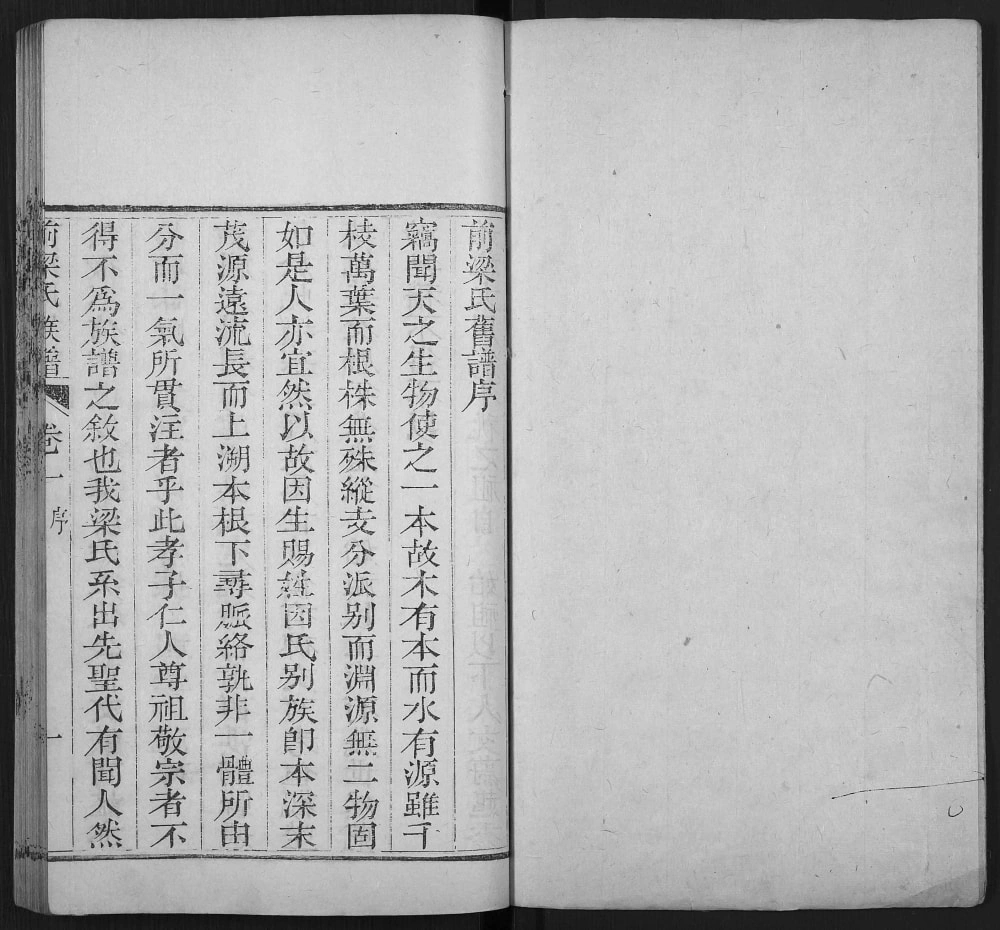 前梁氏舊譜序
竊聞天之生物使之一本故木有本而水有源雖千
枝萬葉而根株無殊縱支分派别而淵源無二物固
如是人亦宜然以故因生賜姓因氏别族卽本深末
茂源遠流長而上溯本根下尋脈絡孰非一體所由
分而一氣所貫注者乎此孝子仁人尊祖敬宗者不
得不爲族譜之敘也我梁氏系出先聖代有聞人然
前梁氏族譜 卷一 序 一